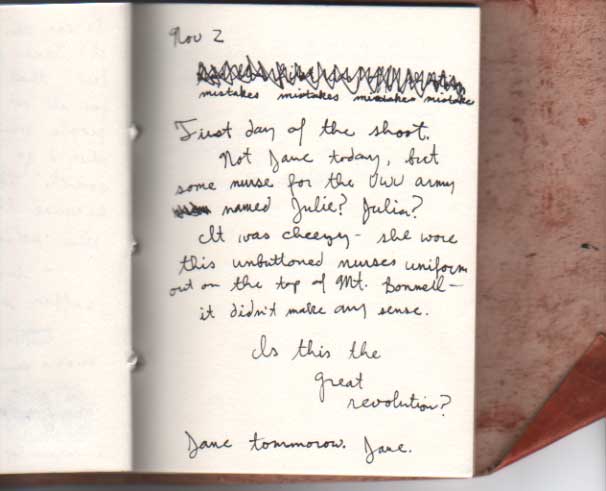 Nov 2
mistakes mistakes mistakes mistake
First day of the shoot.
Not Jane today, but
some nurse for the UWU army
named Julie? Julia?
It was cheeyey - she wore
this unbuttoned nurses uniform
out on the top of Mt. Bonnell -
it didn't make any sense.
Is this the
great
revolution?
Jane tommorow. Jane.